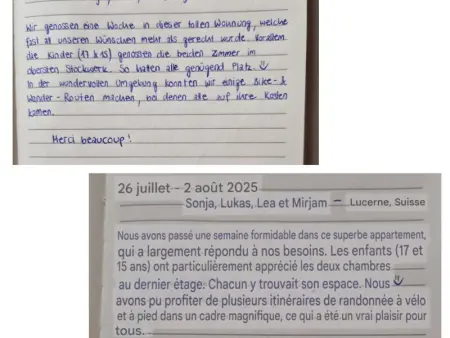 Wir genossen eine Woche in dieser tollen Wohnung, welche
fast all unseren Wünschen mehr als gerecht wurde. Vorallem
die Kinder (17 & 15) genossen die beiden Zimmer im
obersten Stockwerk. So hatten alle genügend Platz.
In der wundervollen Umgebung konnten wir einige Bike- &
Wander-Routen machen, bei denen alle auf ihre Kosten
kamen.
Merci beaucoup!
26 juillet – 2 août 2025
Sonja, Lukas, Lea et Mirjam – Lucerne, Suisse
Nous avons passé une semaine formidable dans ce superbe appartement,
qui a largement répondu à nos besoins. Les enfants (17 et
15 ans) ont particulièrement apprécié les deux chambres
au dernier étage. Chacun y trouvait son espace. Nous
avons pu profiter de plusieurs itinéraires de randonnée à vélo
et à pied dans un cadre magnifique, ce qui a été un vrai plaisir pour
tous.